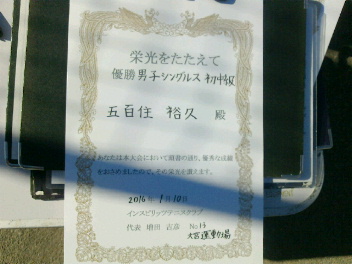 栄光をたたえて
優勝 男子シングルス 初中級
五百住 裕久 殿
あなたは本大会において頭書の通り、優秀な成績
をおさめましたので、その栄光を讃えます。
2016年 1月10日
インスピリッツテニスクラブ
代表 増田 吉彦 No.15
大宮運動場